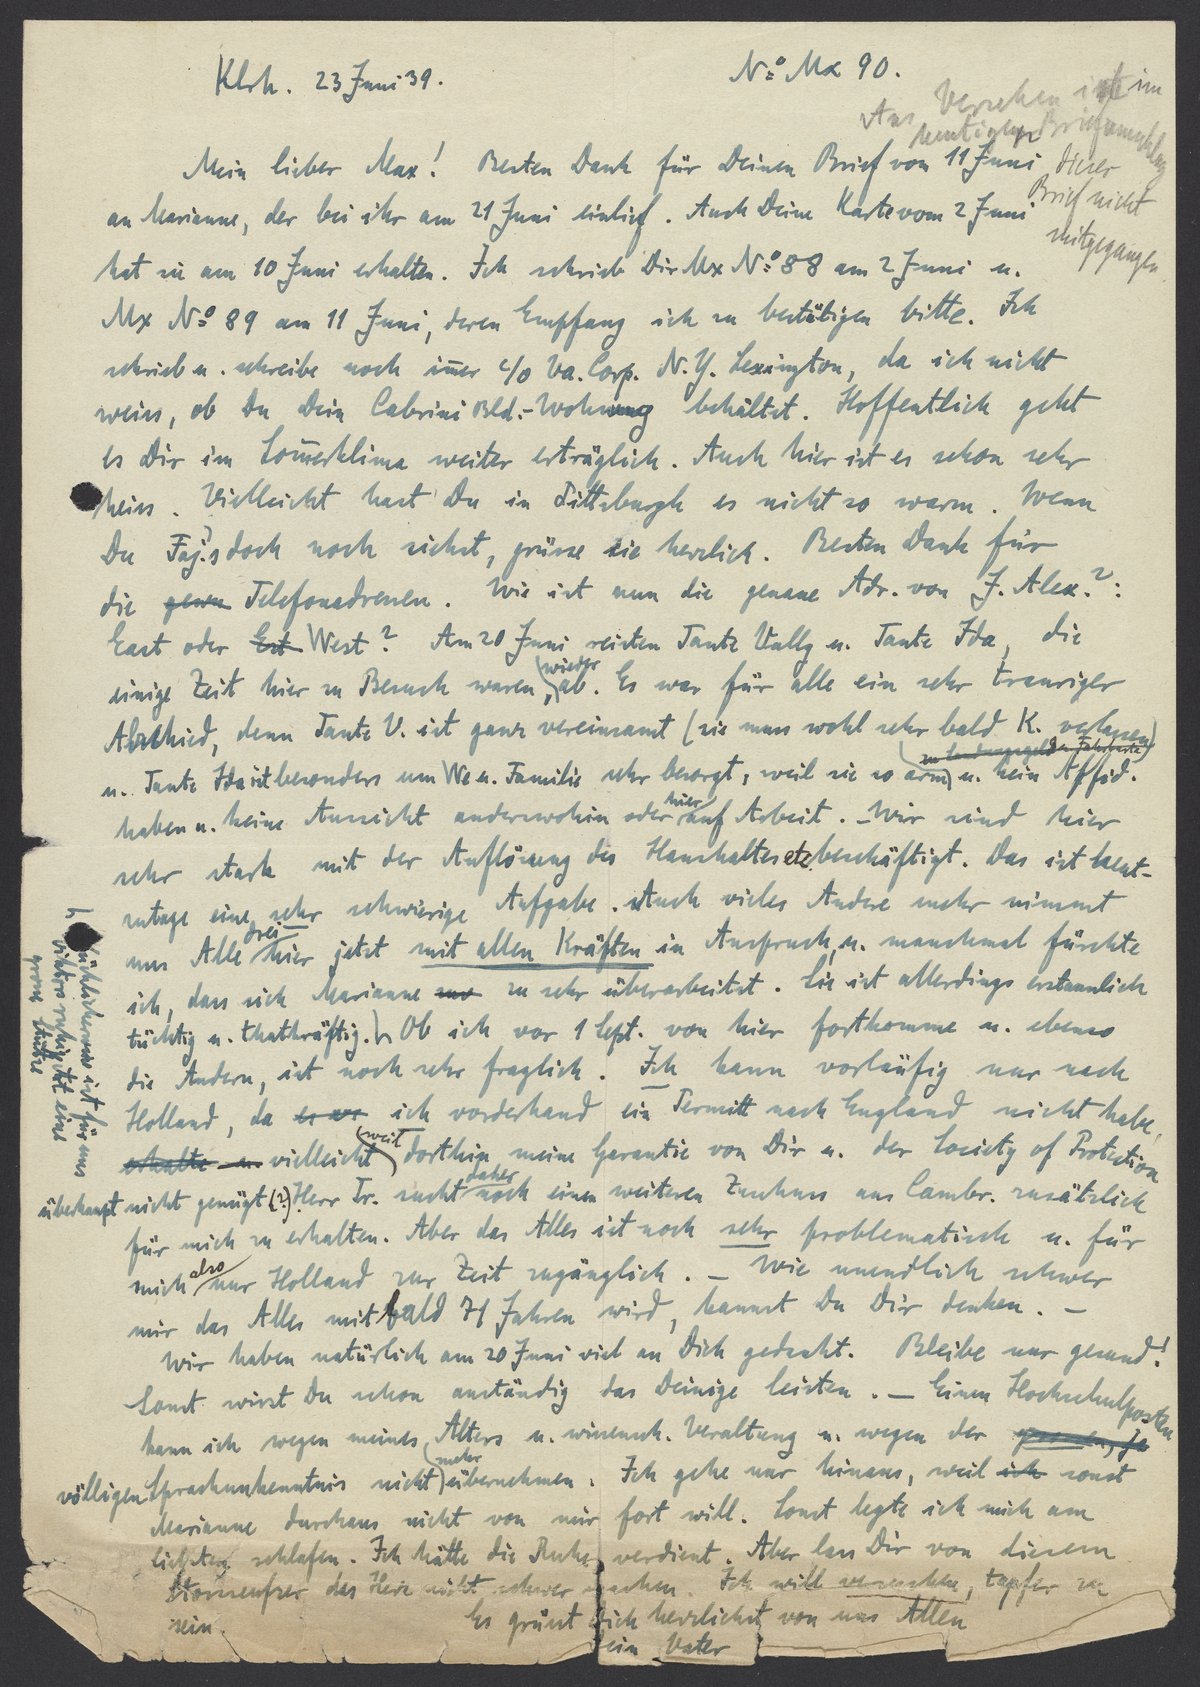 Klrh. 23 Juni 39.
No Mx 90.
Aus Versehen ist im
heutigen Briefumschlag
dieser
Brief nicht
mitgegangen
Mein lieber Max! Besten Dank für Deinen Brief vom 11 Juni
an Marianne, der bei ihr am 21 Juni einlief. Auch Deine Karte vom 2 Juni
hat sie am 10 Juni erhalten. Ich schrieb Dir Mx No 88 am 2 Juni u.
Mx No 89 am 11 Juni, deren Empfang ich zu bestätigen bitte. Ich
schrieb u. schreibe noch im̄er c/o Va. Corp. N.Y. Lexington, da ich nicht
weiss, ob Du Dein Cabrini Bld.-Wohnung behältst. Hoffentlich geht
es Dir im Som̄erklima weiter erträglich. Auch hier ist es schon sehr
heiss. Vielleicht hast Du in Pittsburgh es nicht so warm. Wenn
Du Faj.'s doch noch siehst, grüsse sie herzlich. Besten Dank für
die Telefonadressen. Wie ist nun die genaue Adr. von J. Alex.?:
East oder West? Am 20 Juni reisten Tante Vally u. Tante Ida, die
einige Zeit hier zu Besuch waren, wieder ab. Es war für alle ein sehr trauriger
Abschied, denn Tante V. ist ganz vereinsamt (sie muss wohl sehr bald K. verlassen)
u. Tante Ida ist besonders um We u. Familie sehr besorgt, weil sie so arm u. kein Affid.
haben u. keine Aussicht anderswohin oder hier auf Arbeit. – Wir sind hier
sehr stark mit der Auflösung des Haushaltes etc beschäftigt. Das ist heut-
zutage eine sehr schwierige Aufgabe. Auch vieles Andere mehr nimmt
uns Alle drei hier jetzt mit allen Kräften in Anspruch, u. manchmal fürchte
ich, dass sich Marianne zu sehr überarbeitet. Sie ist allerdings erstaunlich
tüchtig u. thatkräftig. Ob ich vor 1 Sept. von hier fortkomme u. ebenso
die Andern, ist noch sehr fraglich. Ich kann vorläufig nur nach
Holland, da ich vorderhand ein Permitt nach England nicht habe,
vielleicht weil dorthin meine Garantie von Dir u. der Society of Protection
überhaupt nicht genügt (?). Herr Tr. sucht daher noch einen weiteren Zuschuss aus Cambr. zusätzlich
für mich zu erhalten. Aber das Alles ist noch sehr problematisch u. für
mich also nur Holland zur Zeit zugänglich. – Wie unendlich schwer
mir das Alles mit bald 71 Jahren wird, kannst Du Dir denken. –
Wir haben natürlich am 20 Juni viel an Dich gedacht. Bleibe nur gesund!
Sonst wirst Du schon anständig das Deinige leisten. – Einen Hochschulposten
kann ich wegen meines Alters u. wissensch. Veraltung u. wegen der
völligen Sprachunkenntnis nicht mehr übernehmen. Ich gehe nur hinaus, weil sonst
Marianne durchaus nicht von mir fort will. Sonst legte ich mich am
liebsten schlafen. Ich hätte die Ruhe verdient. Aber lass Dir von diesem
Stossseufzer das Herz nicht schwer machen. Ich will versuchen, tapfer zu
sein. Es grüsst Dich herzlichst von uns Allen
Dein Vater
glücklicherweise ist für uns
Viktors
grosse Stütze